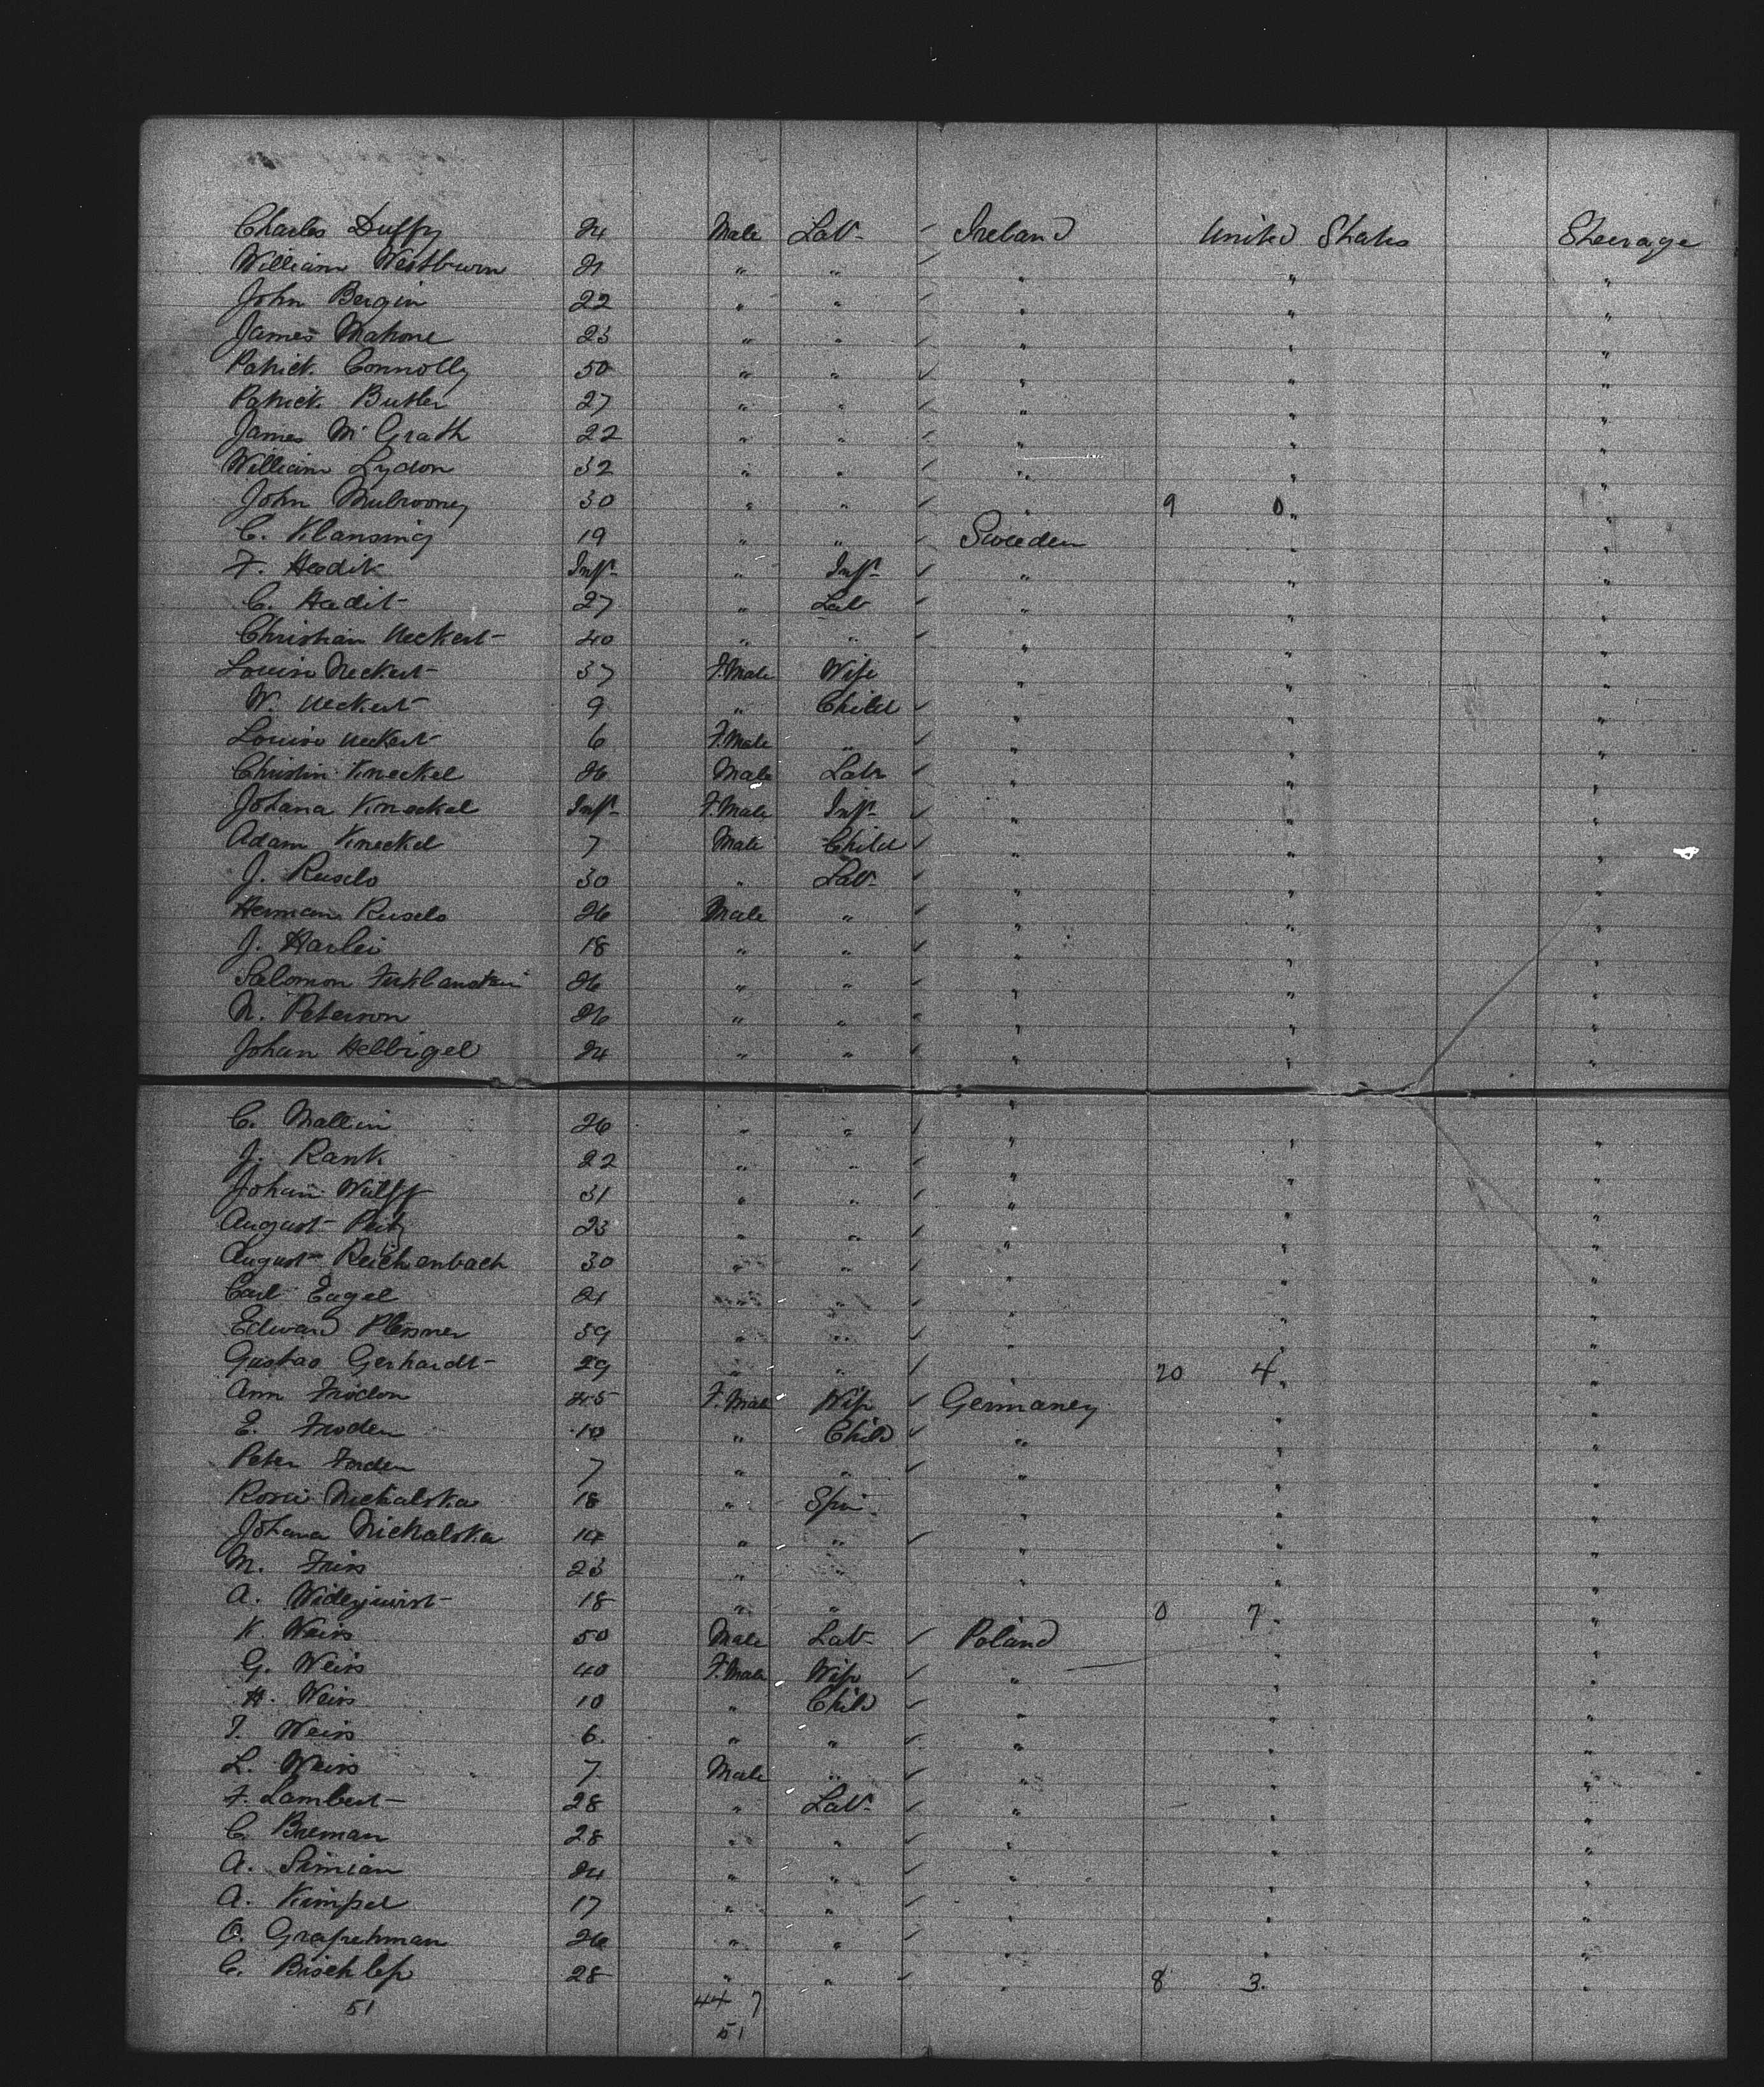 Charles Duffy 24 Male Lab- ✓ Ireland United States Steerage
William Westburn 21 " " ✓ " " "
John Bergin 22 " " ✓ " " "
James Mahone 23 " " ✓ " " "
Patrick Connolly 50 " " ✓ " " "
Patrick Butler 27 " " ✓ " " "
James McGrath 22 " " ✓ " " "
William Lydon 32 " " ✓ " " "
John Mulrooney 30 " " ✓ " 9 0 " "
C. Klansing 19 " " ✓ Sweden " "
F. Hadik Inft- " Inft- ✓ " " "
C. Hadit 27 " Lab ✓ " " "
Christian Neckert 40 " " ✓ " " "
Louise Neckert 37 F.Male Wife " " "
W. Neckert 9 " Child ✓ " " "
Louise Neckert 6 F.Male " ✓ " " "
Christin Kneckel 26 Male Labr ✓ " " "
Johana Kneckel Inft- F.Male Inft- ✓ " " "
Adam Kneckel 7 Male Child ✓ " " "
J. Ruselo 30 " Lab- ✓ " " "
Herman Ruselo 26 Male " ✓ " " "
J. Harlei 18 " " ✓ " " "
Salomon 26 " " ✓ " " "
N. Peterson 26 " " " " " "
Johan Helbigel 24 " " ✓ " " "
C. Mallin 26 " " ✓ " " "
J. Rank 22 " " ✓ " " "
Johan Wulff 31 " " ✓ " " "
August Peitz 23 " " ✓ " " "
August Reichenbach 30 " " ✓ " " "
Carl Engel 21 " " ✓ " " "
Edward Plesner 39 " " ✓ " " "
Gustav Gerhardt 29 " " ✓ " 20 4 " "
Ann Frodon 45 F.Male Wife ✓ Germaney " "
E. Froden 10 " Child ✓ " " "
Peter Froden 7 " " ✓ " " "
Rosie Nickalska 18 " Spin " " "
Johana Nickalska 14 " " ✓ " " "
M. Friss 23 " " " " "
A. 18 " " " 0 7 " "
K. Weiss 50 Male Lab- ✓ Poland " "
G. Weiss 40 F.Male Wife ✓ " " "
H. Weiss 10 " Child ✓ " " "
T. Weiss 6 " " ✓ " " "
L. Weiss 7 Male " ✓ " " "
F. Lambert 28 " Lab- ✓ " " "
C. Breman 28 " " ✓ " " "
A. Simian 24 " " ✓ " " "
A. Kimpel 17 " " ✓ " " "
O. Grapehman 26 " " ✓ " " "
C. 28 " " ✓ " 8 3 "
51 44 7
51